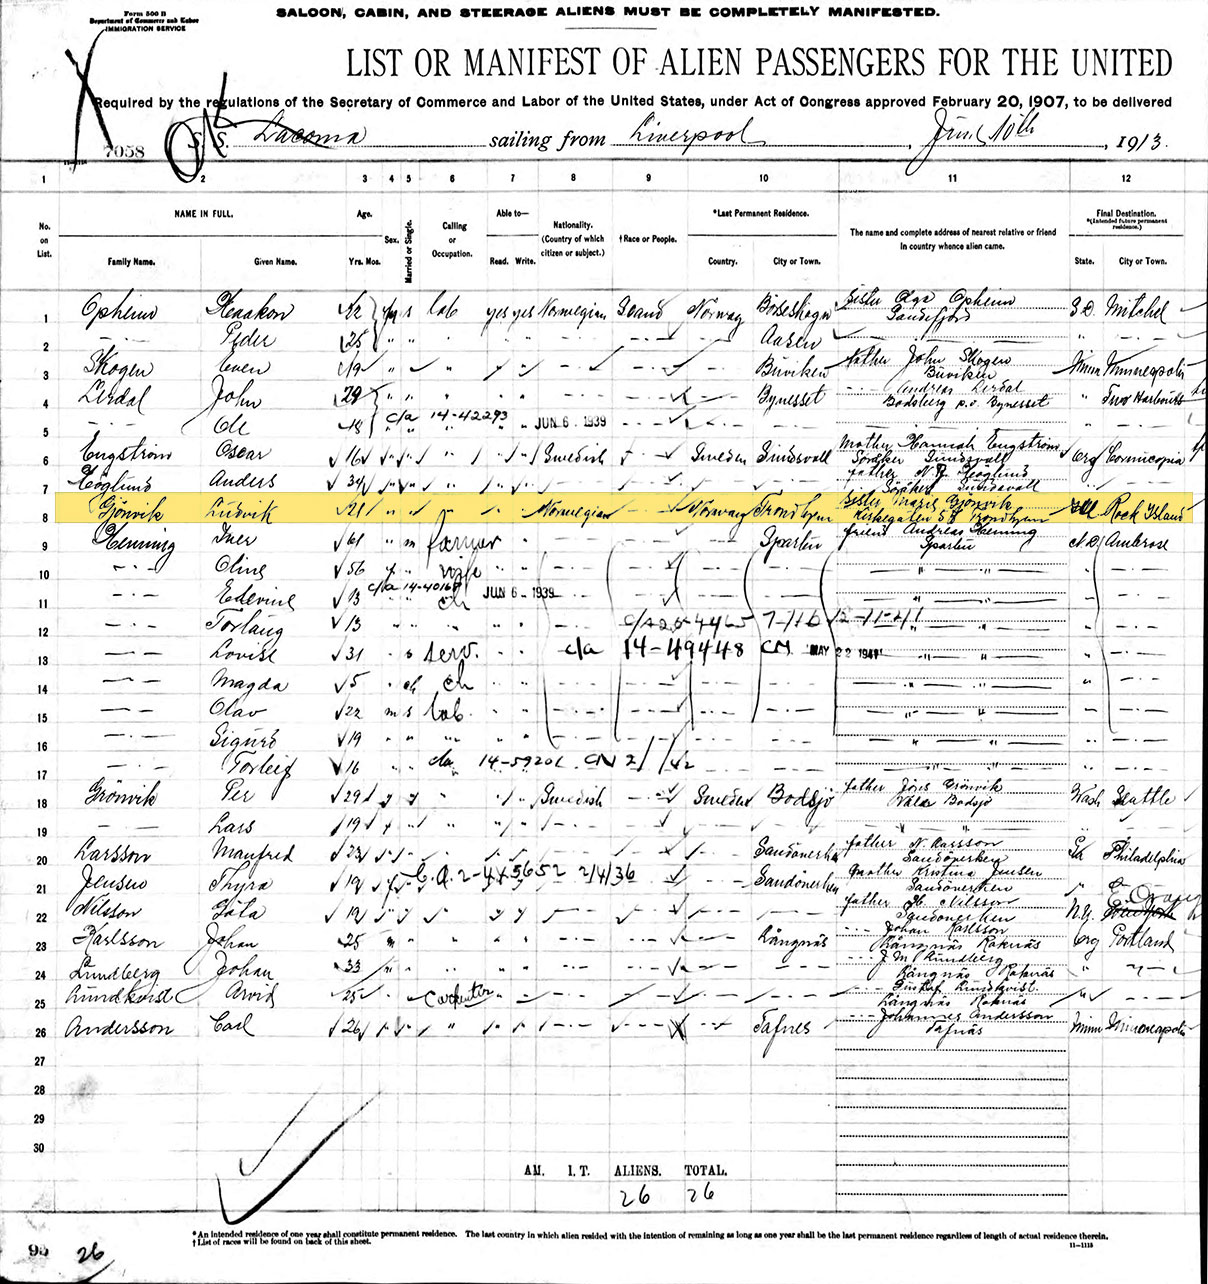 Form 500 B
Department of Commerce and Labor
IMMIGRATION SERVICE
SALOON, CABIN, AND STEERAGE ALIENS MUST BE COMPLETELY MANIFESTED.
LIST OR MANIFEST OF ALIEN PASSENGERS FOR THE UNITED
Required by the regulations of the Secretary of Commerce and Labor of the United States, under Act of Congress approved February 20, 1907, to be delivered
7058 OK S.S. Laconia sailing from Liverpool, June 10th, 1913
1 2 3 4 5 6 7 8 9 10 11 12
No. on List. NAME IN FULL. Age. Sex. Married or Single. Calling or Occupation. Able to— Nationality. (Country of which citizen or subject.) †Race or People. *Last Permanent Residence. The name and complete address of nearest relative or friend in country whence alien came. Final Destination. *(Intended future permanent residence.)
Family Name. Given Name. Yrs. Mos. Read. Write. Country. City or Town. State. City or Town.
1 Opheim Haakon 22 m s lab yes yes Norwegian Scand Norway Sister Olga Opheim Sandefjord S.D. Mitchel
2 —·— Peder 25 " " " Aasen
3 Skogen Even 19 " " " Buviken father John Skogen Buviken Minn Minneapolis
4 Lerdal John 29 " " " Bynesset —·— Andreas Lerdal Bodsberg p.o. Bynesset " Two Harbours
5 —·— Ole 18 c/a 14-42293 JUN 6 1939
6 Engstrom Oscar 16 Swedish Sweden Sundsvall Mother Hannah Engstrom Söråker Sundsvall Org Cornucopia
7 Höglund Anders 34 father N. P. Höglund Söråker Sundsvall
8 Gjönvik Ludvik 21 Norwegian Norway Trondhjem Sister Gjönvik Kirkegaten 58 Trondhjem Ill Rock Island
9 Henning Iver 61 " m farmer Sparbu friend Andreas Henning Sparbu N.D. Ambrose
10 —·— Oline 56 f " wife
11 —·— Edevine 13 c/a 14-40168 ch JUN 6 - 1939
12 Torlaug 13 7-116 12-11-41
13 —·— Lovise 31 " s serv. c/a 14-49448 CN MAY 22 1941
14 —·— Magda 5 " ch ch
15 —·— Olav 22 m s lab.
16 —·— Sigurd 19 " "
17 —·— Torleif 16 " " c/a 14-59201 CN 2/1/42
18 Grönvik Per 29 Swedish Sweden Bodsjö father Jöns Grönvik Bodsjö Wash Seattle
19 —·— Lars 19
20 Larsson Manfred 23 Sandönerken father N. Larsson Sandönerken Pa Philadelphia
21 Jensen Thyra 19 C.A. 2-445652 2/4/36 Sandönerken Mother Kristina Jensen Sandönerken
22 Nilsson Göta 19 father Nilsson Sandönerken N.Y. E. Orange
23 Karlsson Johan 25 m Långnäs —·— Johan Karlsson Långnäs Raknäs Org Portland
24 Lundberg Johan 33 —·— J M Lundberg Långnäs Raknäs
25 Lundkvist Arvid 25 Carpenter —·— Gustaf Lundkvist. Långnäs Raknäs
26 Andersson Carl 26 Tafnes —·— Johannes Andersson Tafnäs Minn Minneapolis
27
28
29
30
AM. I. T. ALIENS. TOTAL.
26 26
*An intended residence of one year shall constitute permanent residence. The last country in which alien resided with the intention of remaining as long as one year shall be the last permanent residence regardless of length of actual residence therein.
†List of races will be found on back of this sheet. 11—1113
95 26